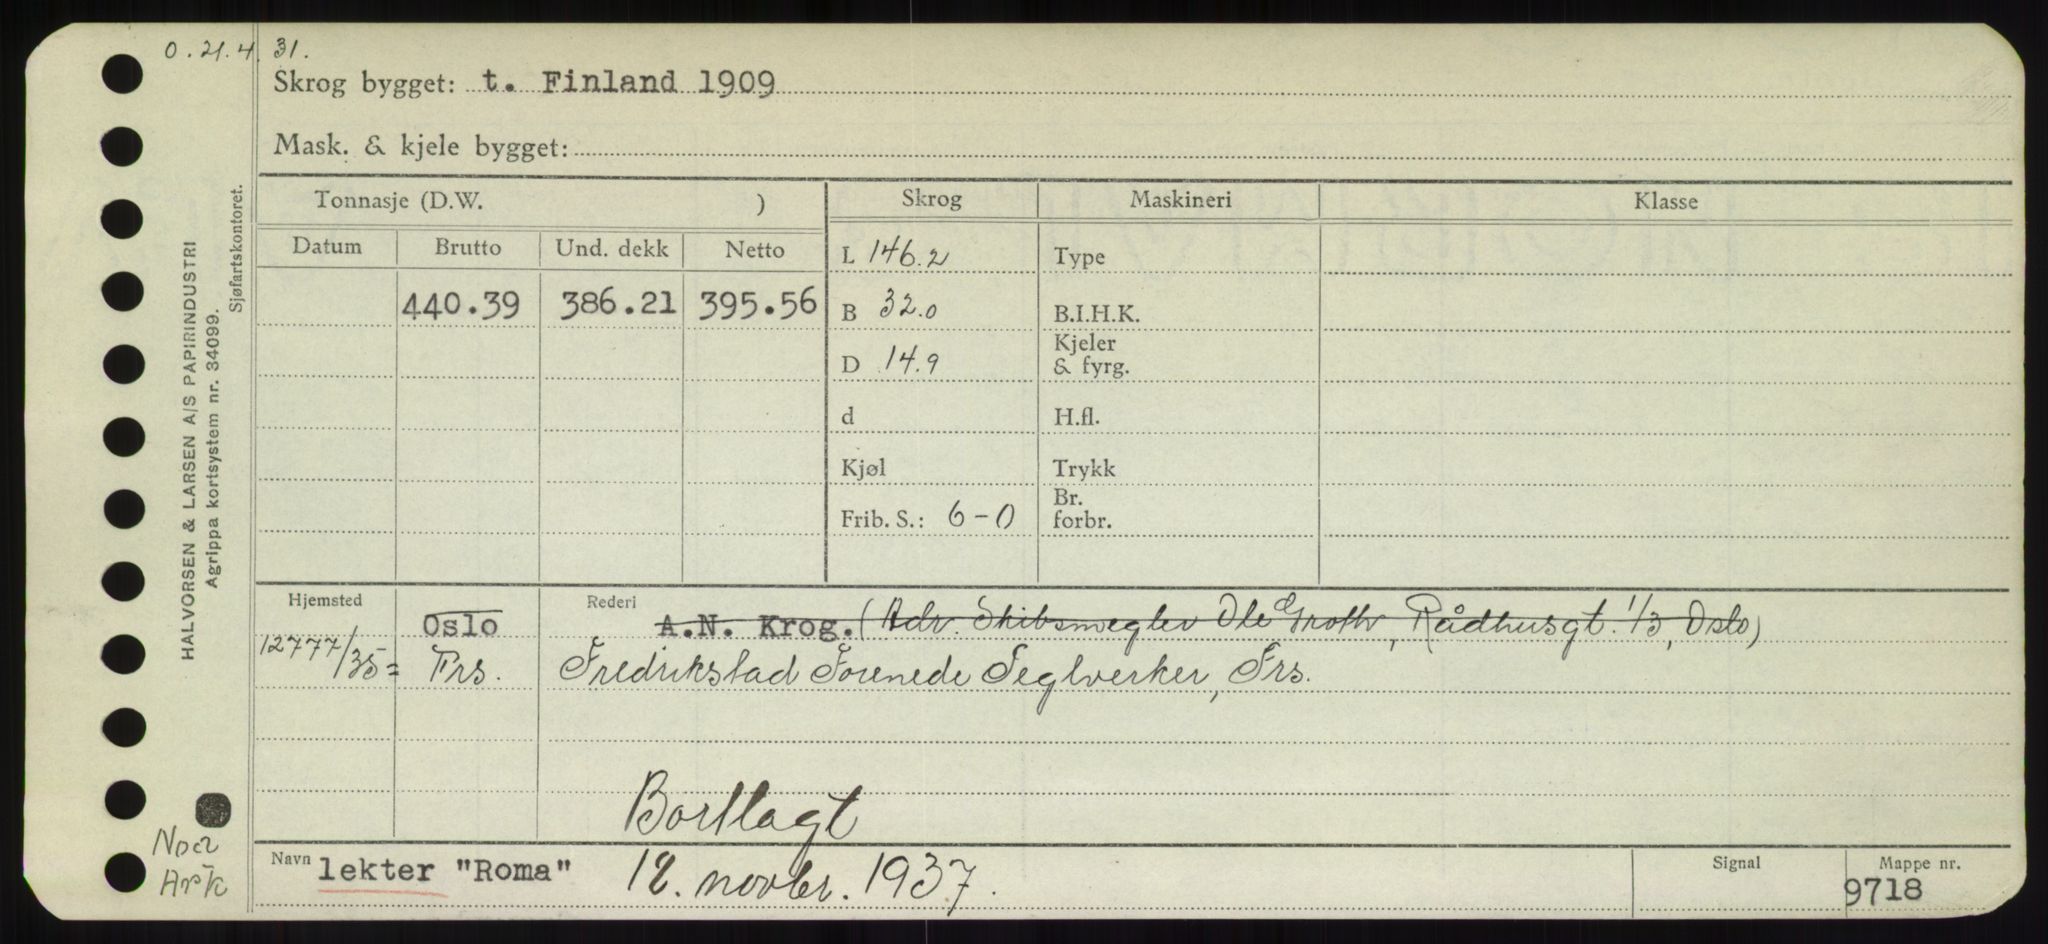 O. 21. 4. 31.
Skrog bygget: t. Finland 1909
Mask. & kjele bygget:
Tonnasje (D.W. ) Skrog Maskineri Klasse
Datum Brutto Und. dekk Netto
L 146.2 Type
440.39 386.21 395.56 B 32.0 B.I.H.K.
D 14.9 Kjeler & fyrg.
d H.fl.
Kjøl Trykk
Frib. S.: 6-0 Br. forbr.
Hjemsted Rederi
Oslo A.N. Krog. (Adv. Skibsmegler Ole Groth, Rådhusgt. 1/3, Oslo)
12777/35= Frs. Fredrikstad Forenede Teglverker, Frs.
Bortlagt
Navn lekter "Roma" 12. novbr. 1937. Signal Mappe nr.
9718
HALVORSEN & LARSEN A/S PAPIRINDUSTRI
Agrippa kortsystem nr. 34099.
Sjøfartskontoret.
Ark